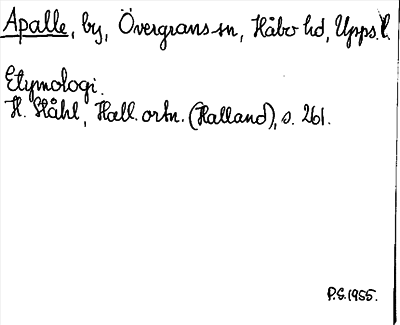 Apalle, by, Övergrans sn, Håbo hd, Upps. l.
Etymologi.
H. Ståhl, Hall. ortn. (Halland), s. 261.
P.S. 1955.